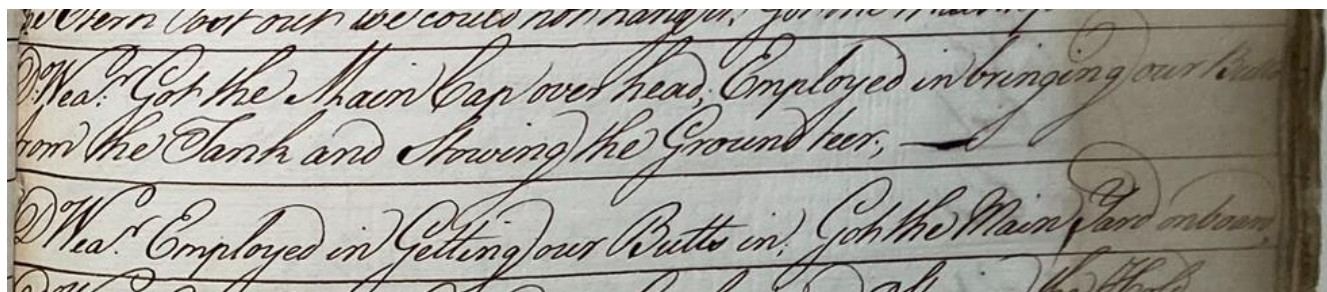 Stern Boat out we could not hang it, Got the
D.º Wea.r Got the Main Cap over head, Employed in bringing our Butts
from the Tank and Stowing the Ground teer,
D.º Wea.r Employed in Getting our Butts in, Got the Main Yard onboard,
the Hold